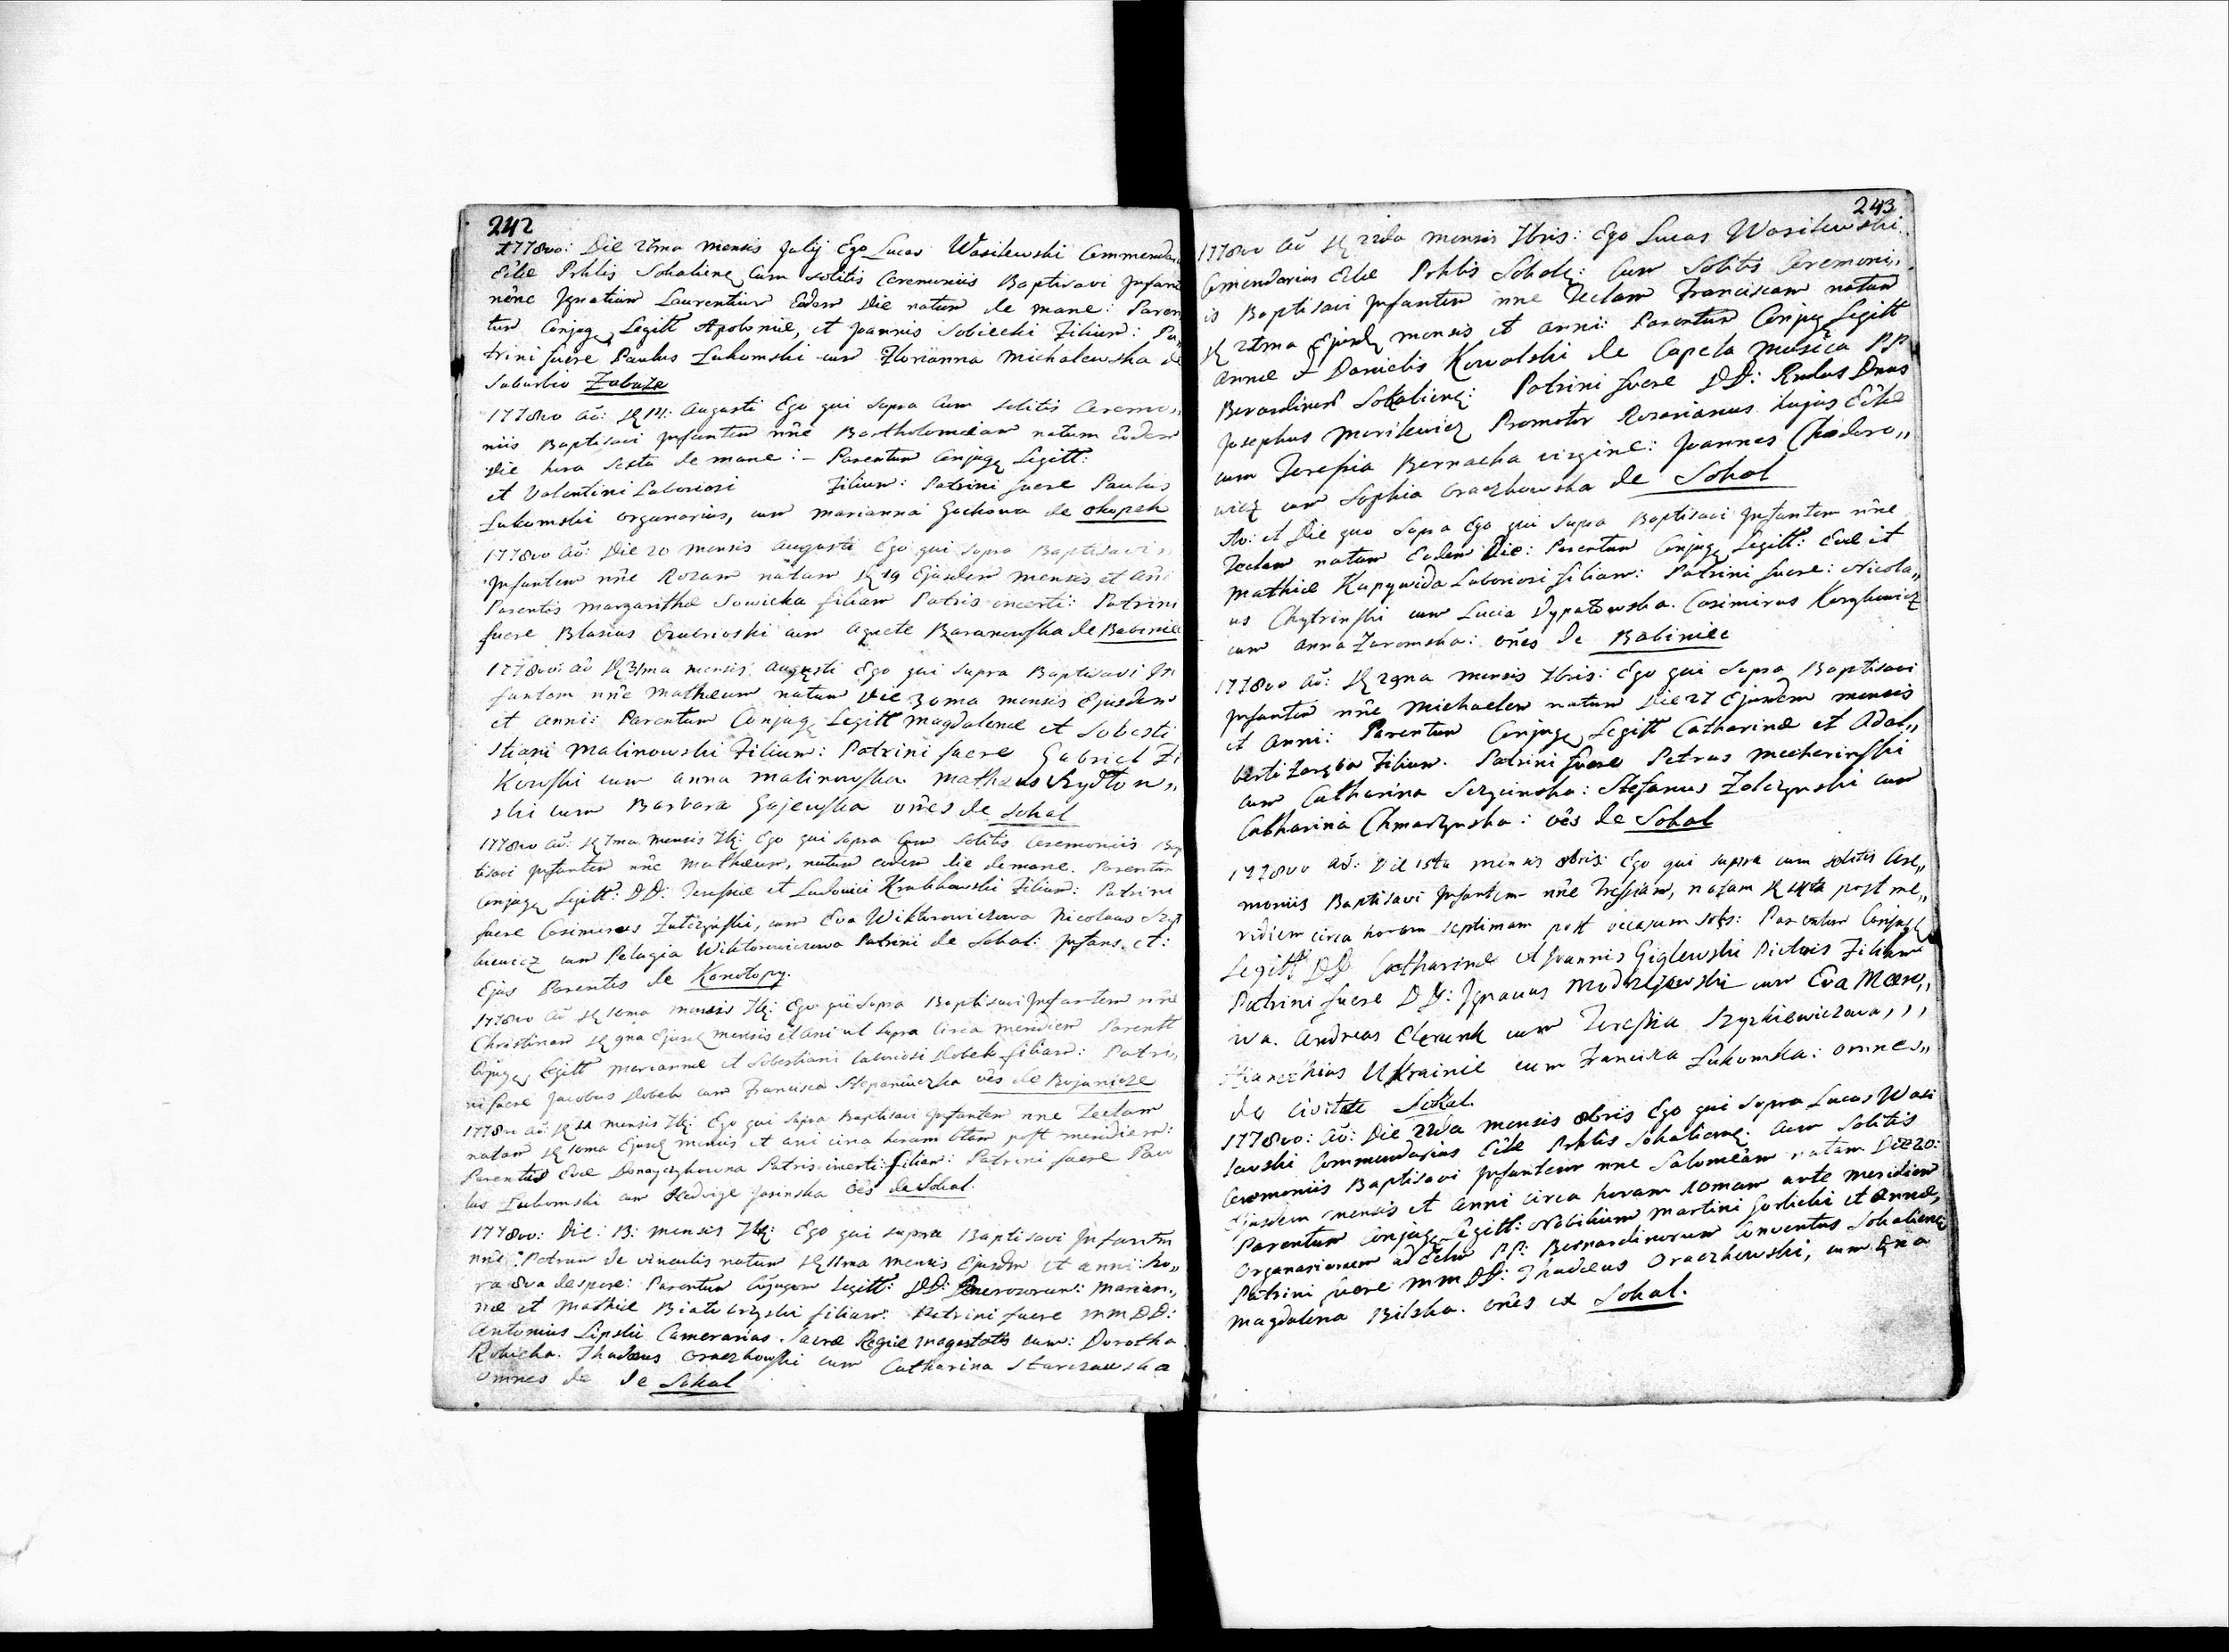 242
1778vo: Die 27ma mensis Julij Ego Lucas Wasilewski Commenda
Ecˉlae Prhlis Sokalienę Cum solitis Ceremoniis Baptisavi Infant
nēne Ignatium Laurentium Eodem Die natum de mane: Paren
tum Conjug. Legitt Apoloniae, et Joannis Sobieċki Filium: Pa,,
trini fuere Paulus Łukomski cum Florianna Michalewska de
Suburbio Zabuże
1778vo Aō: augusti Ego qui supra Cum solitis Ceremo,,
niis Baptisavi Infantem nn̄e Bartholomaeum natum eodem
die hora sexta de mane: – Parentum Conjugę Legitt:
et Valentini Laboriosi Filium: Patrini fuere Paulus
Łukomski organarius, cum marianna Gochowa de okopek
1778vo Aō: Die 20 mensis augusti Ego qui supra Baptisavi
Infantem nn̄e Rozam natam 19 Ejusdem mensis et ani
Parentis margarithae Sowicka filiam Patris incerti: Patrini
fuere Blasius cum agnete Baranowska de Babiniec
1778vo: aō 31ma mensis augusti Ego qui supra Baptisavi In
fantem nn̄e mathaeum natum Die 30ma mensis Ejusdem
et anni: Parentum Conjugę Legitt magdalenae et Sobesti
stiani Malinowski Filium: Patrini fuere Gabriel Zi
Kowski cum anna malinowska mathaeus Rydło n,,
ski cum Barbara Gajewska on̄es de Sokal
1778vo aō: 7ma mensis 7br: Ego qui supra Cum solitis Ceremoniis Bap
tisavi Infantem nn̄e Mathaeum, natum eodem die demane. Parentum
Conjugę Legitt: DD: Teressiae et Ludovici Krubkowski Filium: Patrini
fuere Casimirus Zutczyński, cum Eva Wiktorowiczowa Nicolaus
kiewicz cum Pelagia Wiktorowiczowa Patrini de Sokal: Infans et:
Ejus Parentes de Konotopy.
1778vo aō 10ma mensis 7br: Ego qui supra Baptisavi Infantem nn̄e
Christinam 9na Ejusdę mensis et ani ut supra circa meridiem Parentt
Cōjugę Legitt Mariannae et Sobestiani laboriosi Hobek filiam: Patri,,
ni fuere Jacobus Hobek cum Francisca Stepaniuczka oēs de Bojanicze
1778vo aō: 11 mensis 7br: Ego qui supra Baptisavi Infantem nne Teclam
natam 10ma Ejusdę mensis et ani circa horam 6tam post meridiem:
Parentis Evae Donayczykowna Patris incerti: filiam: Patrini fuere Pau
lus Łukomski cum Hedvige Jasinska oēs de Sokal.
1778vo: Die: 13: mensis 7br: Ego qui supra Baptisavi Infantem
nn̄e: Petrum de vinculis natum 11ma mensis Ejusdem et anni: ho,,
ra 8va despere: Parentum Cōjugum Legitt: DD: Generosorum: Marian,,
nae et Mathiae Biało brzyski filium: Patrini fuere MM DD:
Antonius Lipski Camerarius Sacrae Regiae Magestatis cum: Dorotha
Robicka. Thadaeus Oraczkowski cum Catharina Starczewska
omnes de de Sokal
243
1778vo aō 22da mensis 7bris: Ego Lucas Wasilewski
Comendarius Ecˉlae Prhlis Sokalę: Cum Solitis Ceremoni,,
is Baptisavi Infantem nne Teclam Franciscam natam
21ma Ejusdę mensis et anni: Parentum Conjugę Legitt
Annae & Danielis Kowalski de Capela Musica PP
Bernardinorum Sokalienę: Patrini fuere DD: Rndus Dnus
Josephus Morikewicz Promotor Rozarianus hujus Ecˉlae
cum Teressia Bernacka virgine: Joannes Chodoro,,
wicz cum Sophia Oraczkowska de Sokal
Ao: et Die quo supra Ego qui supra Baptisavi Infantem nn̄e
Teclam natam Eodem Die: Parentum Conjugę Legitt: Evae et
Mathiae Kapywida Laboriosi filiam: Patrini fuere: Nicola,,
us Chytrinski cum Lucia Dypatowska. Casimirus Korzkiewicz
cum Anna Zaromska: on̄es de Babiniec
1778vo aō: 29na mensis 7bris: Ego qui supra Baptisavi
Infantem nn̄e Michaelem natum Die 27 Ejusdem mensis
et Anni: Parentum Conjugę Legitt Catharinae et Adal,,
berti Zaręba Filium. Patrini fuere Petrus Mecherinski
cum Catharina Serginska: Stefanus Zolczynski cum
Catharina Chmarzynska: oēs de Sokal
1778vo aō: Die 15ta mensis 8bris: Ego qui supra cum solitis Cere,,
moniis Baptisavi Infantem nn̄e Tressiam, natam 14ta post me,,
ridiem circa horam septimam post occasum solis: Parentum Conjugę
Legitt DD Catharinae et Joannis Giglewski Pictoris Filiam
Patrini fuere DD: Ignacius Modrzejewski cum Eva Maro,,
wa. Andreas Cterunk cum Teressia Szyszkiewiczowa,,,
Hiancthius Ukrainiec cum Francisca Łukomska: omnes,,
de civitate Sokal.
1778vo: Aō: Die 22da mensis 8bris Ego qui supra Lucas Wasi
lewski Commendarius Ecˉlae Prhlis Sokalienę: Cum Solitis
Ceremoniis Baptisavi Infantem nne Salomeam natam Die 20:
Ejusdem mensis et Anni circa horam 10mam ante meridiem
Parentum Conjugę Legitt: Nobilium Martini Gorlicki et Annae,
Organariorum ad Eclam PP: Bernardinorum Conventus Sokalienę
Patrini fuere MM DD: Thadaeus Oraczkowski, cum Gna
Magdalena Bilska. on̄es ex Sokal.